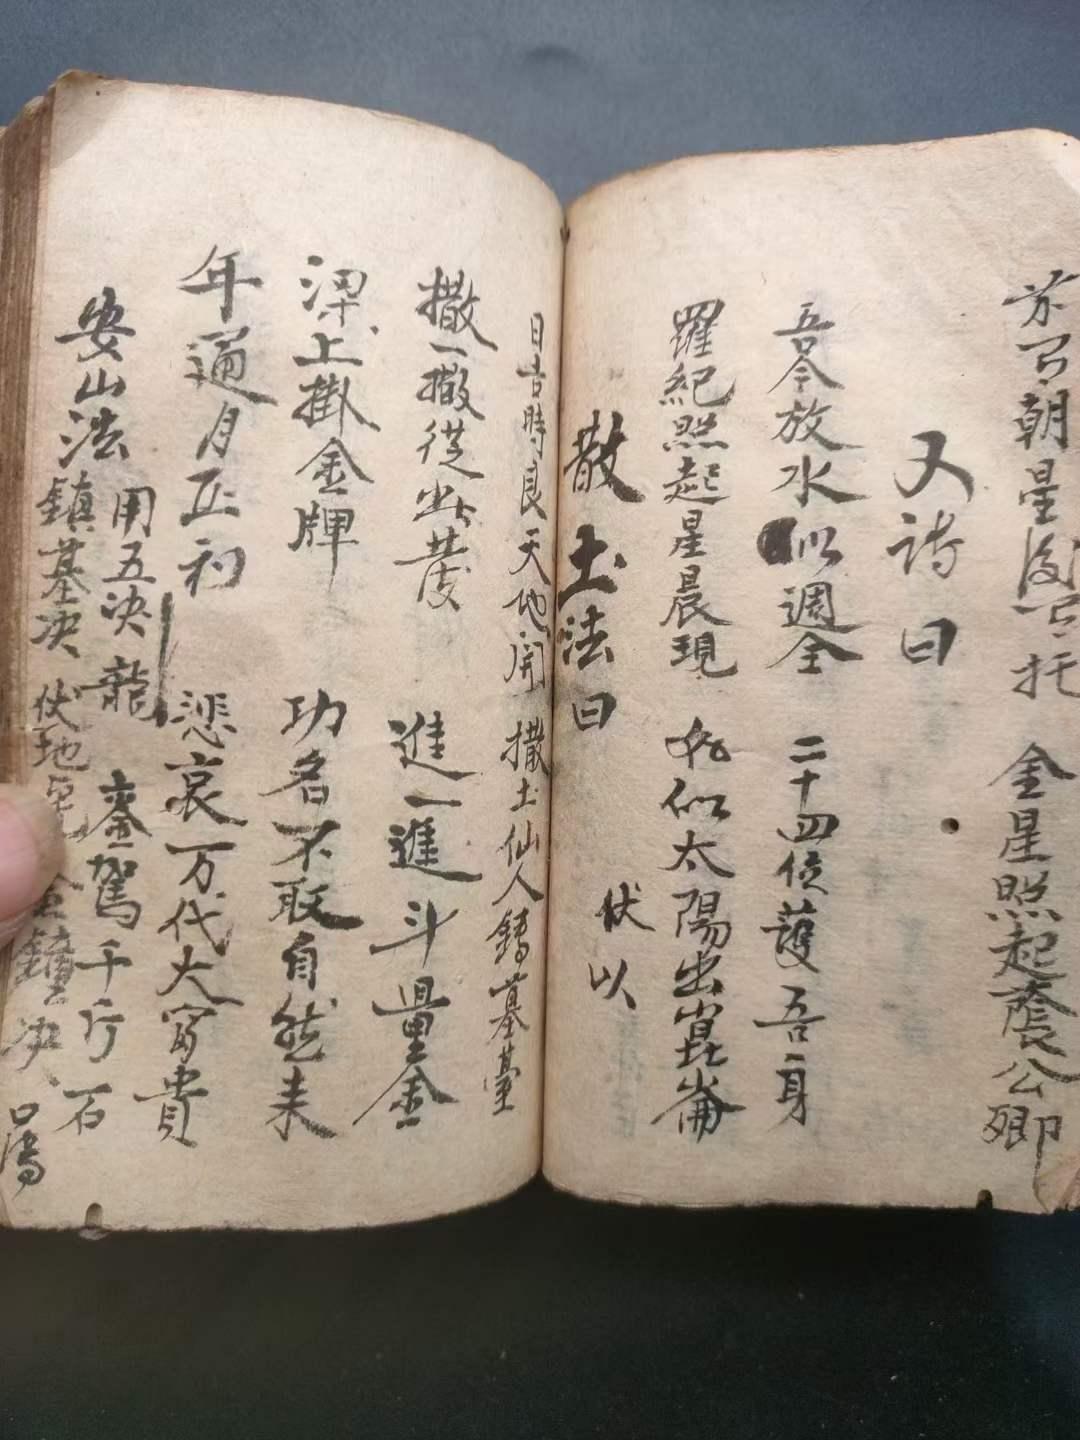 朝星 托 金星照起蔭公卿
又詩曰
吾今放水似週全 二十四位護吾身
羅紀照起星晨現 似太陽出崑崙
散土法曰 伏以
日吉時良天地開 撒土仙人鑄墓臺
撒一撒從此發 進一進斗量金
梁上掛金牌 功名不取自然来
年通月正利 悲哀万代大富貴
安山法 用五决龍 鑾駕千斤石
鎮基决 伏地 金鐘决